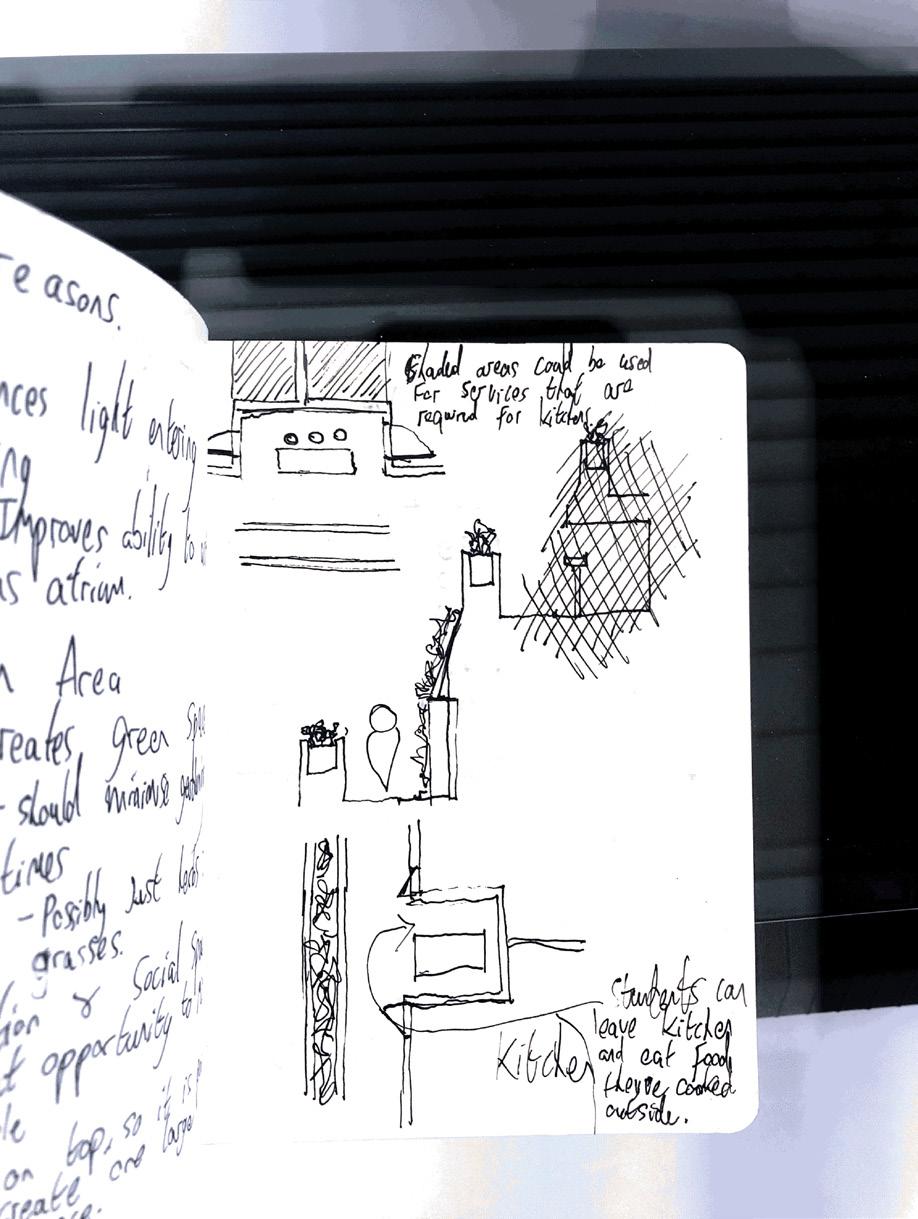 reasons.
light entering
Improves ability to
as atrium.
Area
creates green
- should minimise
times
- Possibly Just
grasses.
& Social
opportunity to
on top, so it is
create one large
Shaded areas could be used
For services that are
required for kitchens
Students can
leave Kitchen
and eat food
they've cooked
outside.
Kitchen